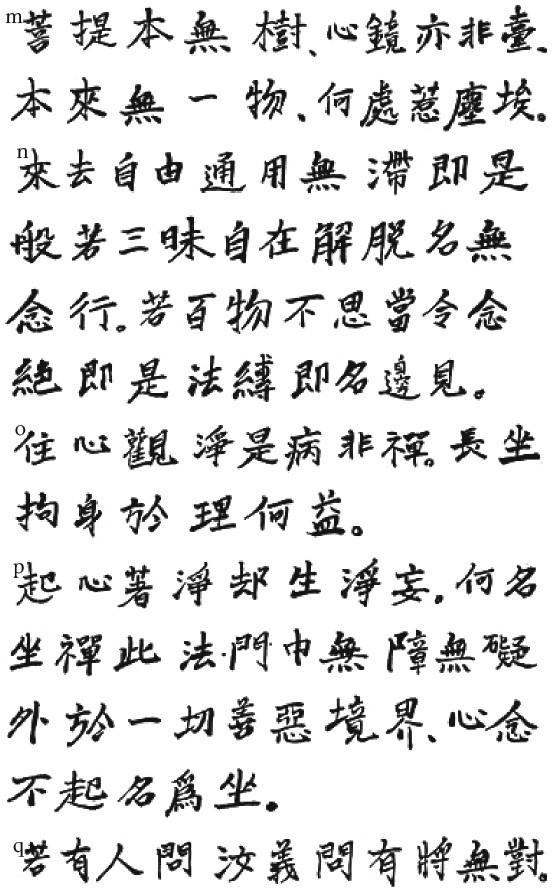 m菩提本無樹、心鏡亦非臺、
本來無一物、何處惹塵埃。
n來去自由通用無滯即是
般若三昧自在解脱名無
念行。若百物不思當令念
絕即是法縛即名邊見。
o住心觀淨是病非禪。長坐
拘身於理何益。
p起心著淨却生淨妄。何名
坐禪此法門巾無障無礙
外於一切善惡境界、心念
不起名爲坐。
q若有人問汝義問有將無對。